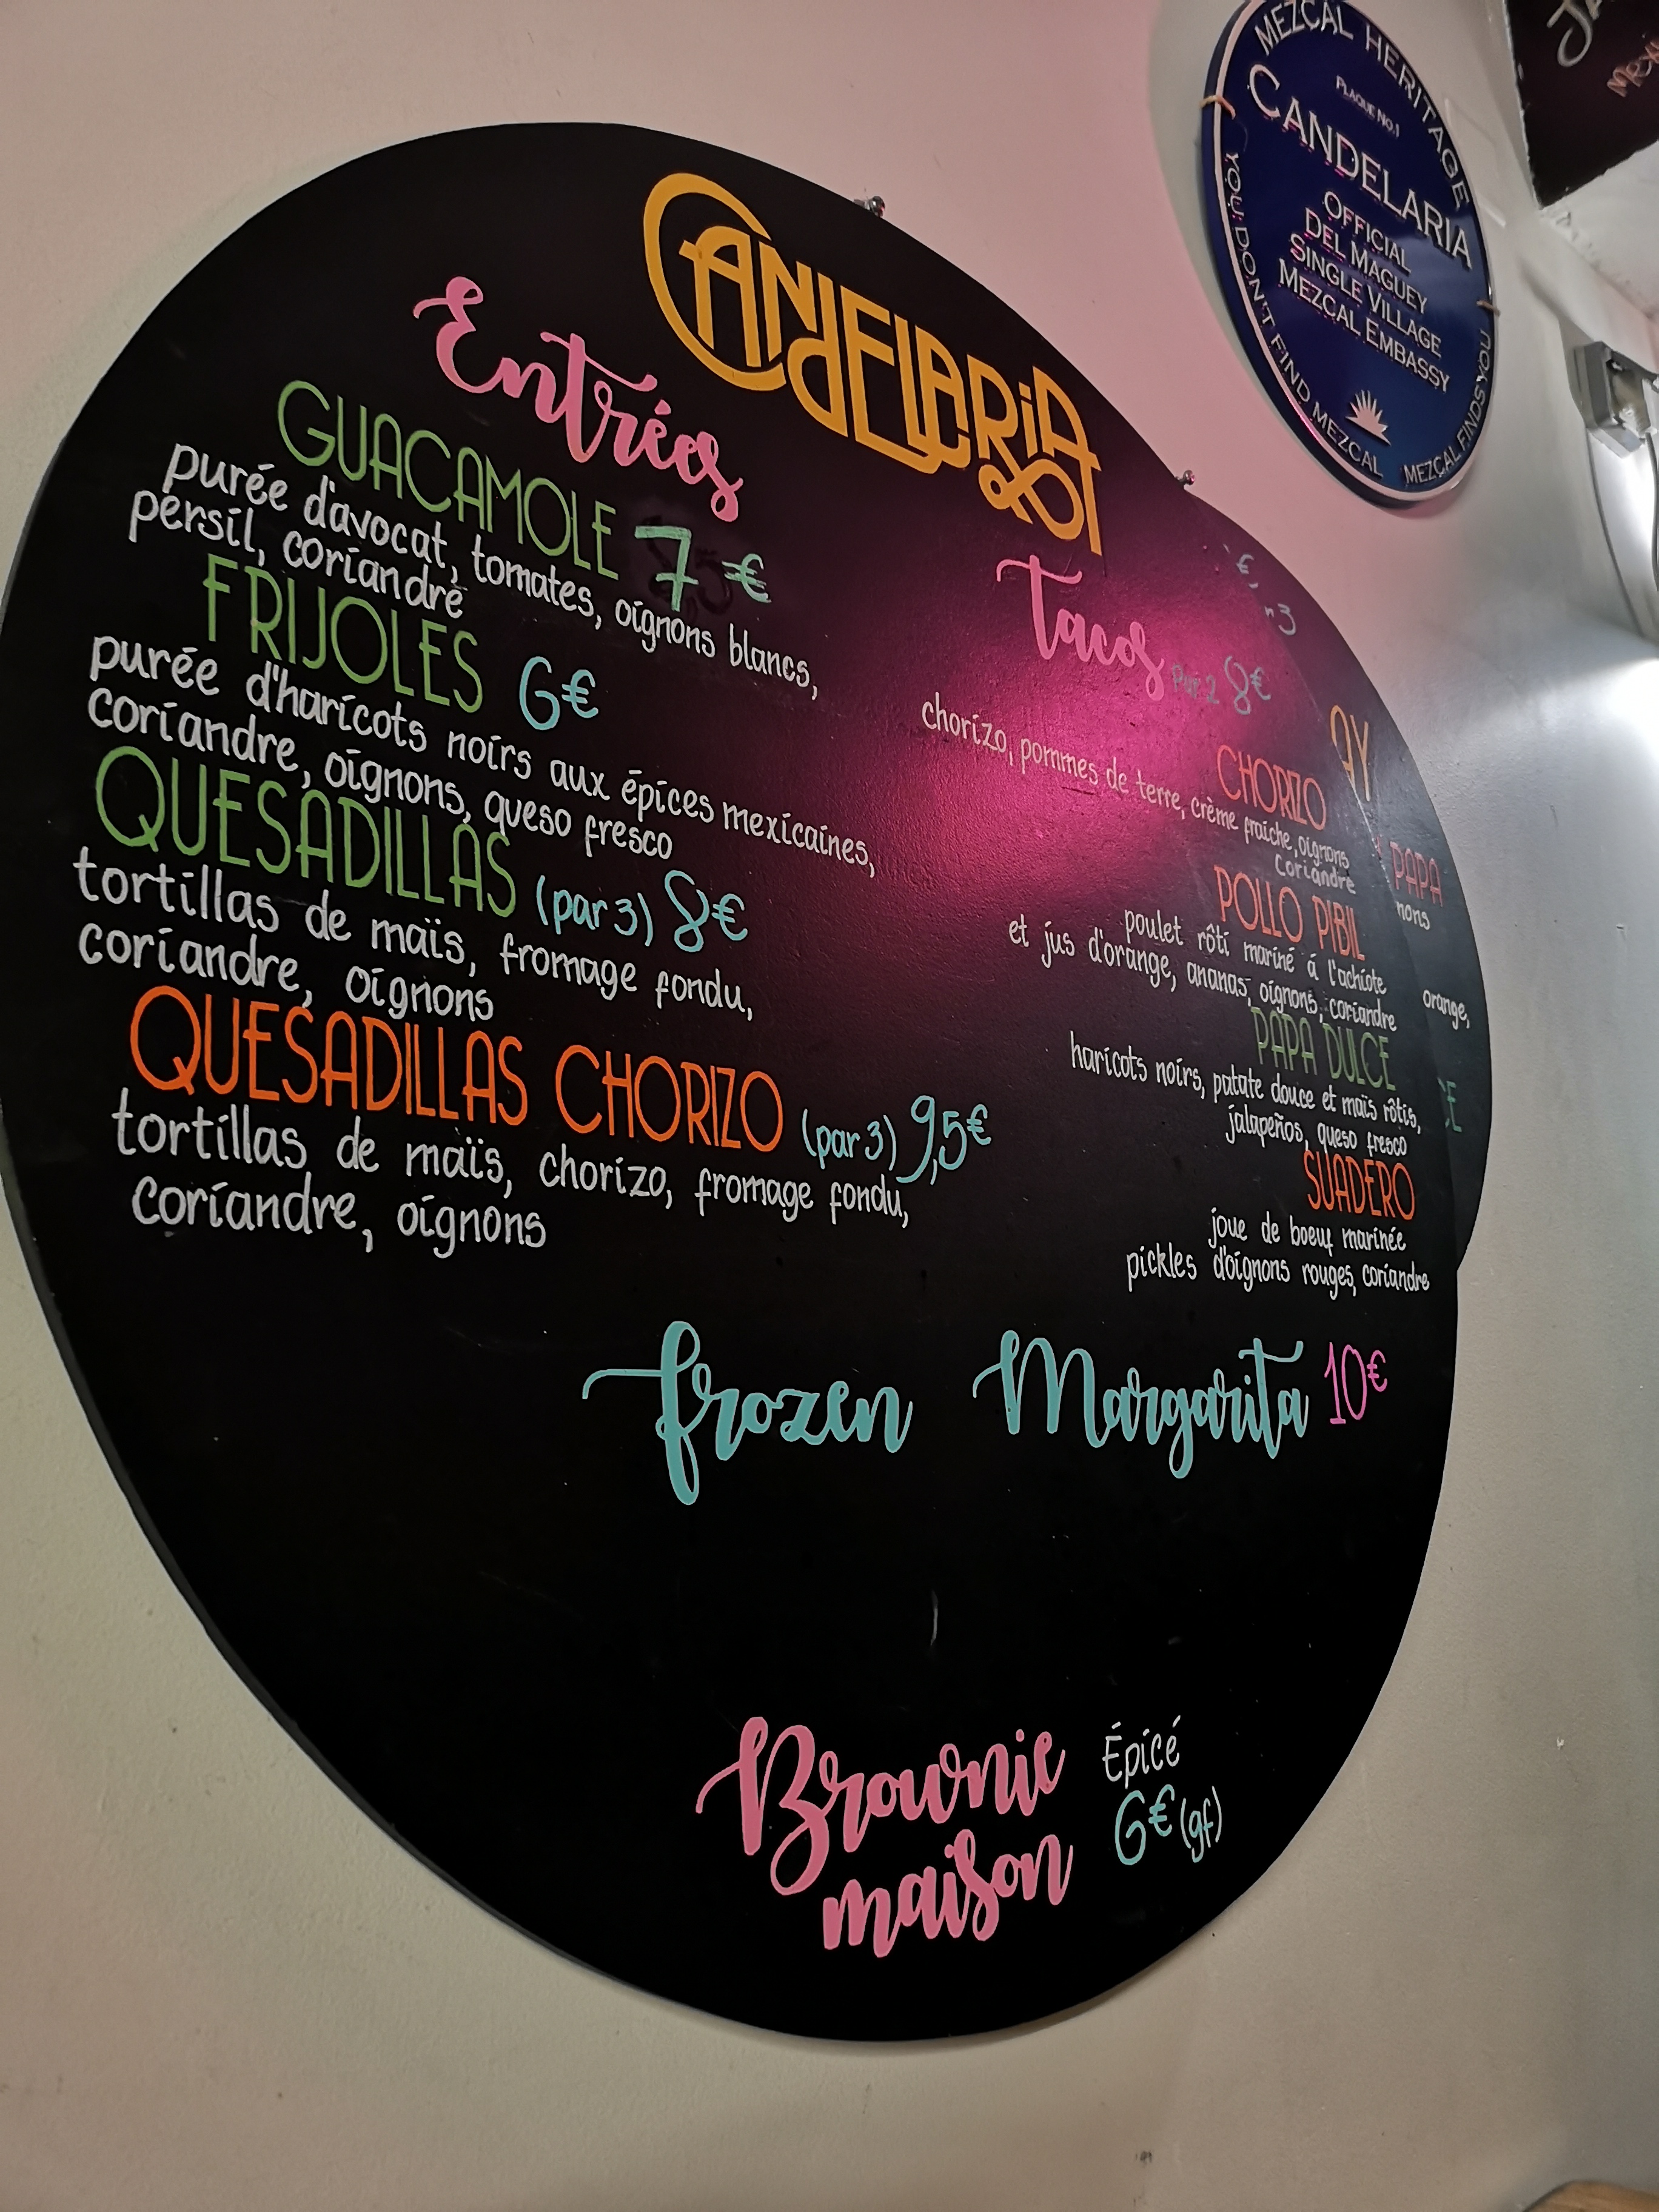 CANDELARIA
Entrées
GUACAMOLE 7€
purée d'avocat, tomates, oignons blancs,
persil, coriandre
FRIJOLES 6€
purée d'haricots noirs aux épices mexicaines,
coriandre, oignons, queso fresco
QUESADILLAS (par 3) 8€
tortillas de maïs, fromage fondu,
coriandre, oignons
QUESADILLAS CHORIZO (par 3) 9,5€
tortillas de maïs, chorizo, fromage fondu,
coriandre, oignons
Tacos Par 2 8€
CHORIZO
chorizo, pommes de terre, crème fraîche, oignons
Coriandre
POLLO PIBIL
poulet rôti mariné á l'achiote
et jus d'orange, ananas, oignons, coriandre
PAPA DULCE
haricots noirs, patate douce et maïs rôtis,
jalapeños, queso fresco
SUADERO
joue de boeuf marinée
pickles d'oignons rouges, coriandre
frozen Margarita 10€
Brownie Épicé
maison 6€ (gf)
€
n3
AY
PAPA
nons
orange,
CE
MEZCAL HERITAGE
PLAQUE NO.1
CANDELARIA
OFFICIAL
DEL MAGUEY
SINGLE VILLAGE
MEZCAL EMBASSY
YOU DON'T FIND MEZCAL MEZCAL FINDS YOU